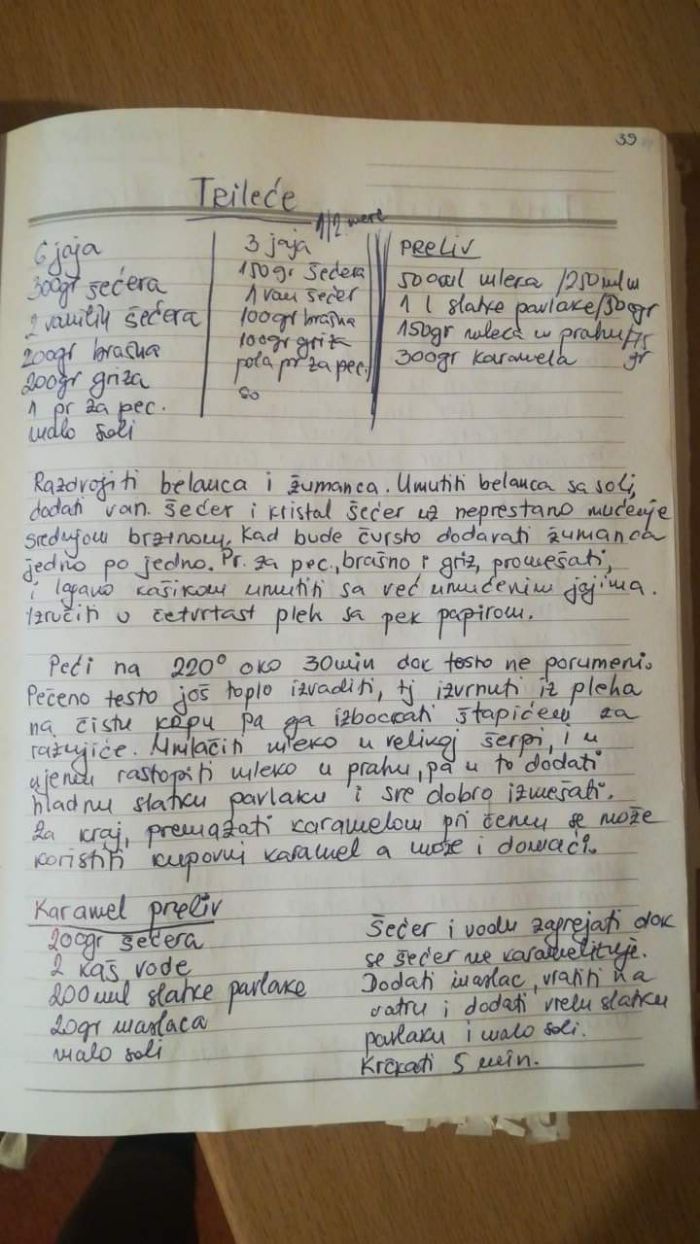 39
Trileće
6 jaja
300gr šećera
2 vanilin šećera
200gr brašna
200gr griza
1 pr za pec.
malo soli
1/2 mere
3 jaja
150gr šećera
1 van šećer
100gr brašna
100gr griza
pola pr za pec.
so
PRELIV
500ml mleka /250ml
1 l slatke pavlake/500gr
150gr mleka u prahu/75
gr
300gr karamela
Razdvojiti belanca i žumanca. Umutiti belanca sa soli,
dodati van. šećer i kristal šećer uz neprestano mućenje
srednjom brzinom. Kad bude čvrsto dodavati žumanca
jedno po jedno. Pr. za pec., brašno i griz, promešati,
i lagano kašikom umutiti sa već umućenim jajima.
Izručiti u četvrtast pleh sa pek papirom.
Peći na 220° oko 30min dok testo ne porumeni.
Pečeno testo još toplo izvaditi, tj izvrnuti iz pleha
na čistu krpu pa ga izbockati štapićem za
ražnjiće. Umlačiti mleko u velikoj šerpi, i u
njemu rastopiti mleko u prahu, pa u to dodati
hladnu slatku pavlaku i sve dobro izmešati.
Za kraj, premazati karamelom pri čemu se može
koristiti kupovni karamel a može i domaći.
Karamel preliv
200gr šećera
2 kaš vode
200ml slatke pavlake
20gr maslaca
malo soli
Šećer i vodu zagrejati dok
se šećer ne karamelizuje.
Dodati maslac, vratiti na
vatru i dodati vrelu slatku
pavlaku i malo soli.
Krčkati 5 min.